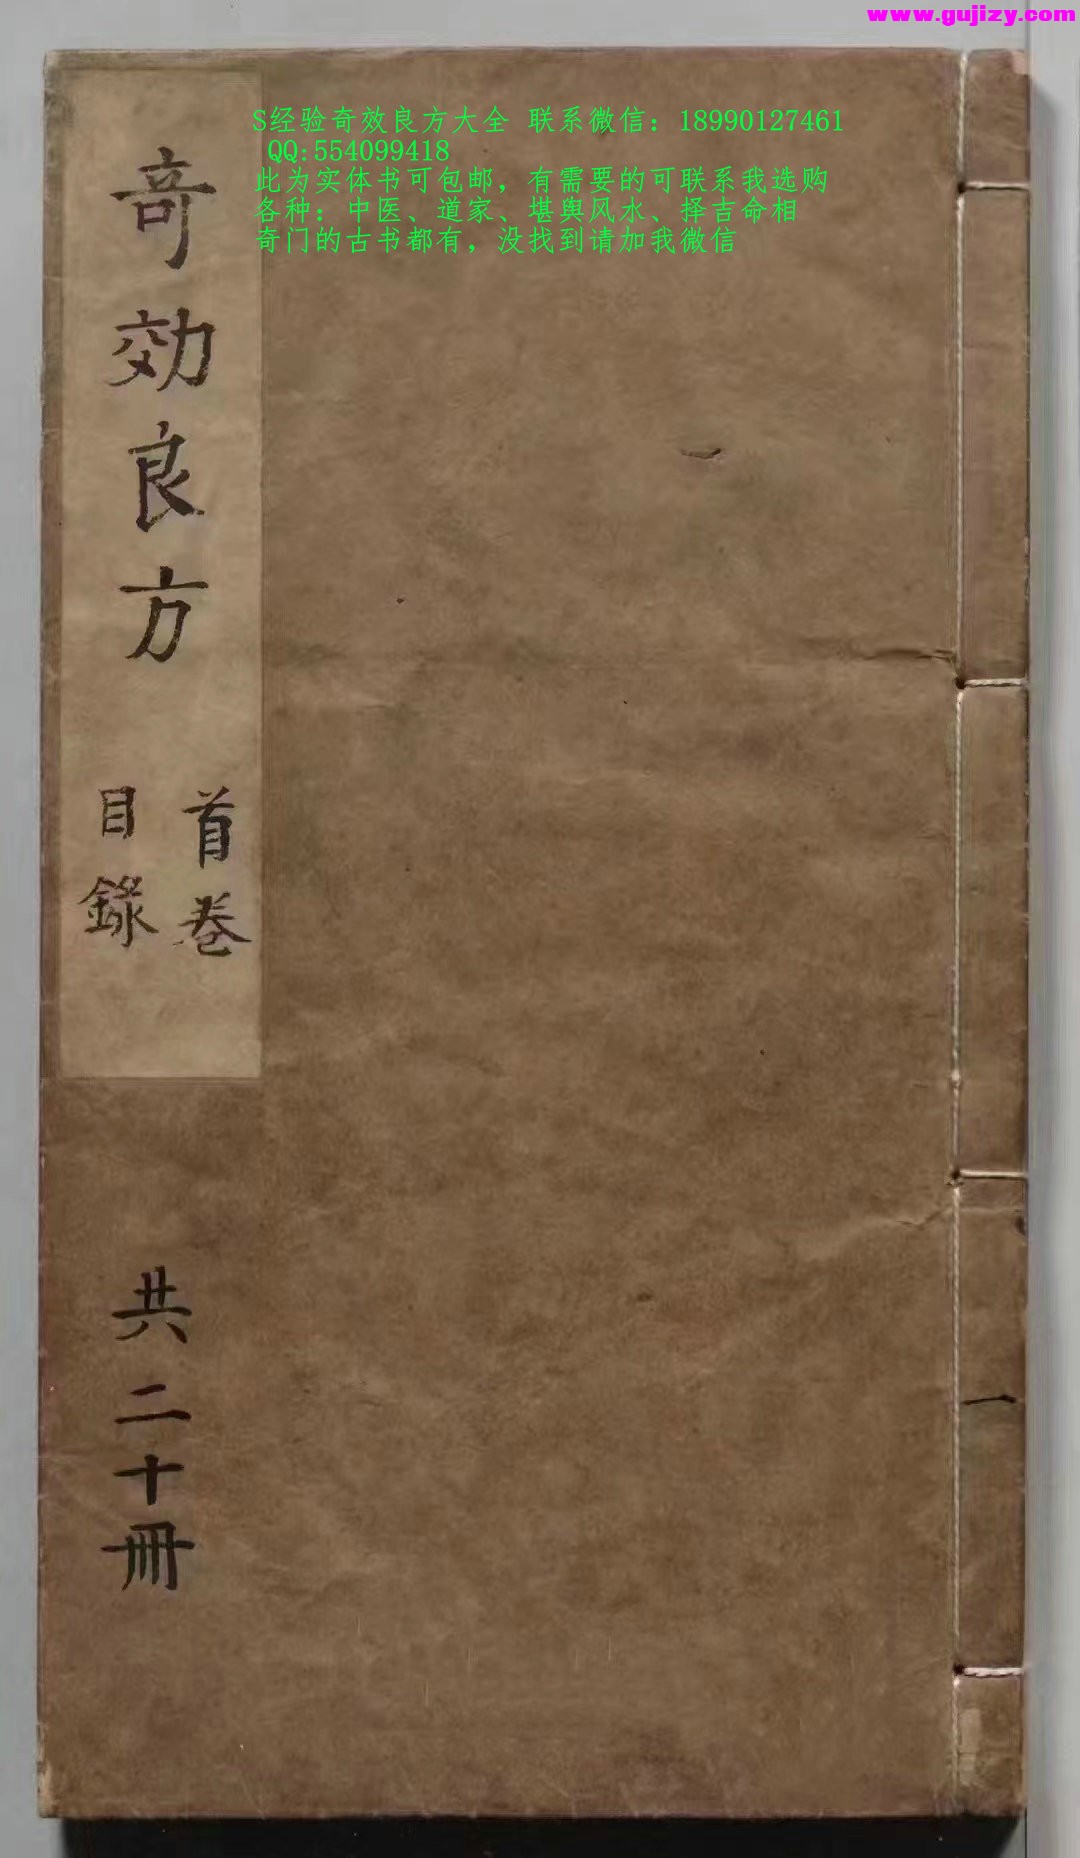 www.gujizy.com
S经验奇效良方大全 联系微信：18990127461
QQ:554099418
此为实体书可包邮，有需要的可联系我选购
各种：中医、道家、堪舆风水、择吉命相
奇门的古书都有，没找到请加我微信
奇效良方
首卷
目錄
共二十冊
一